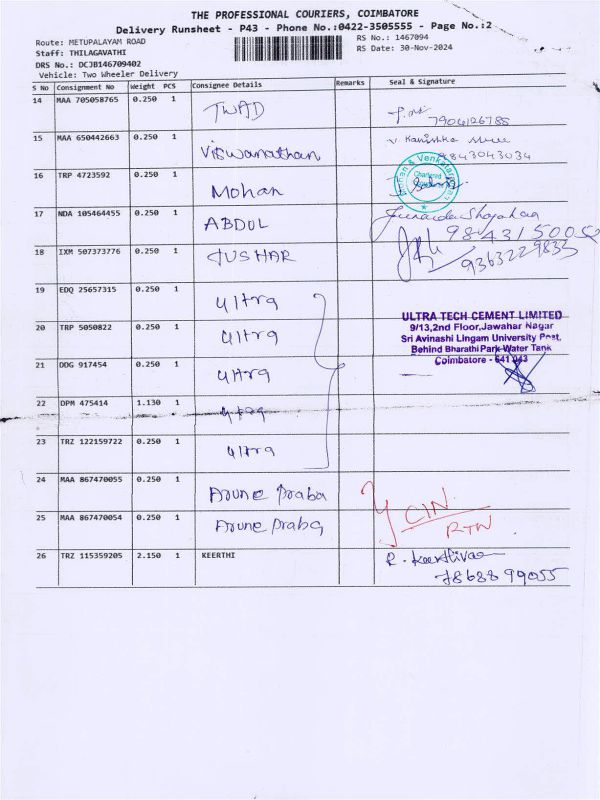 THE PROFESSIONAL COURIERS, COIMBATORE
Delivery Runsheet - P43 - Phone No.:0422-3505555 - Page No.:2
Route: METUPALAYAM ROAD
RS No.: 1467094
Staff: THILAGAVATHI
RS Date: 30-Nov-2024
DRS No.: DCJB146709402
Vehicle: Two Wheeler Delivery
S No Consignment No Weight PCS Consignee Details Remarks Seal & Signature
14 MAA 705058765 0.250 1 TWAD
7904126788
15 MAA 650442663 0.250 1 Viswanathan V. Kanishka
9843043034
16 TRP 4723592 0.250 1 Mohan
Mohan & Venkataraman
Chartered
17 NDA 105464455 0.250 1 ABDUL
18 IXM 507373776 0.250 1 TUSHAR
9363229835
19 EDQ 25657315 0.250 1 Ultra
20 TRP 5050822 0.250 1 Ultra
ULTRA TECH CEMENT LIMITED
9/13,2nd Floor,Jawahar Nagar
Sri Avinashi Lingam University Post,
Behind Bharathi Park Water Tank
Coimbatore - 641 043
21 DDG 917454 0.250 1 Ultra
22 DPM 475414 1.130 1 Ultra
23 TRZ 122159722 0.250 1 Ultra
24 MAA 867470055 0.250 1 Arune Praba
CIN
RTN
25 MAA 867470054 0.250 1 Arune Praba
26 TRZ 115359205 2.150 1 KEERTHI